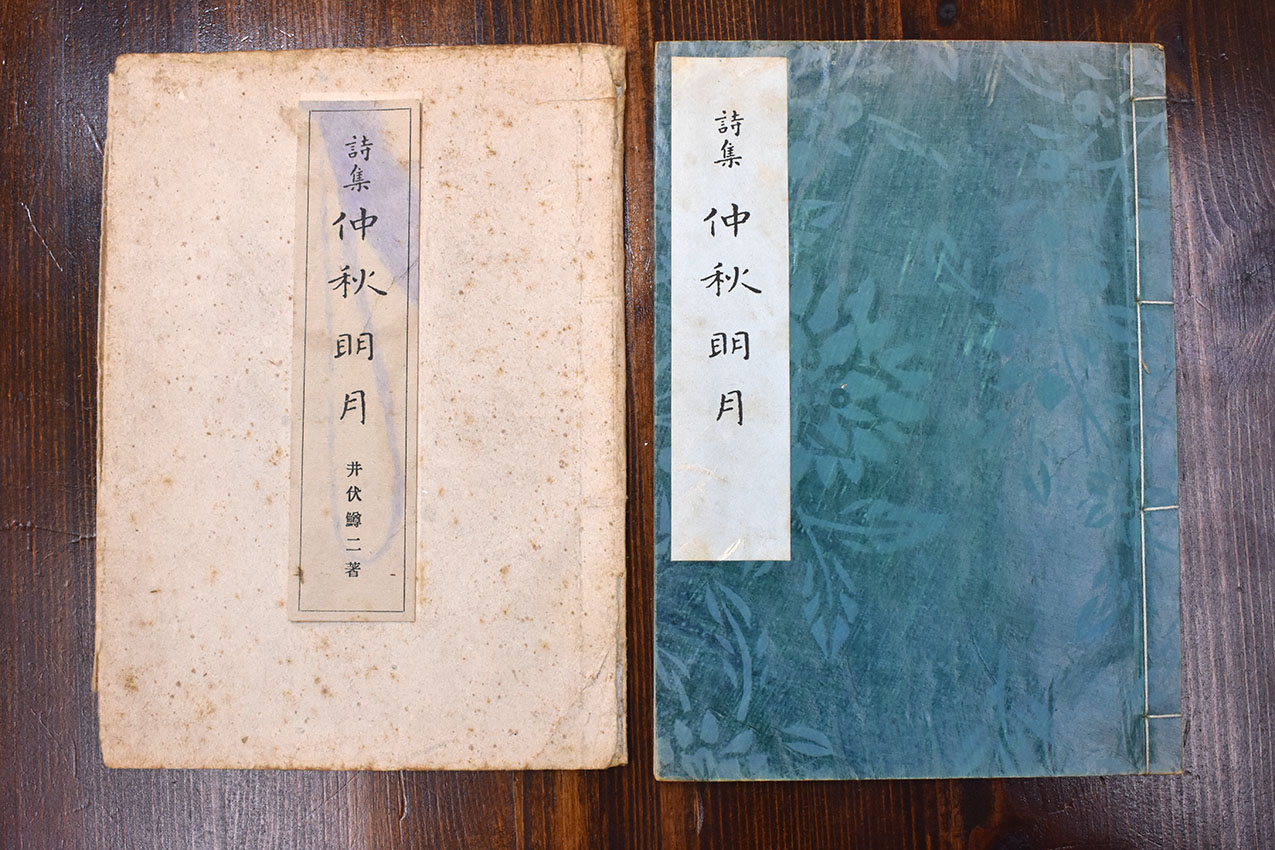 詩集 仲秋明月 井伏鱒二著
詩集 仲秋明月